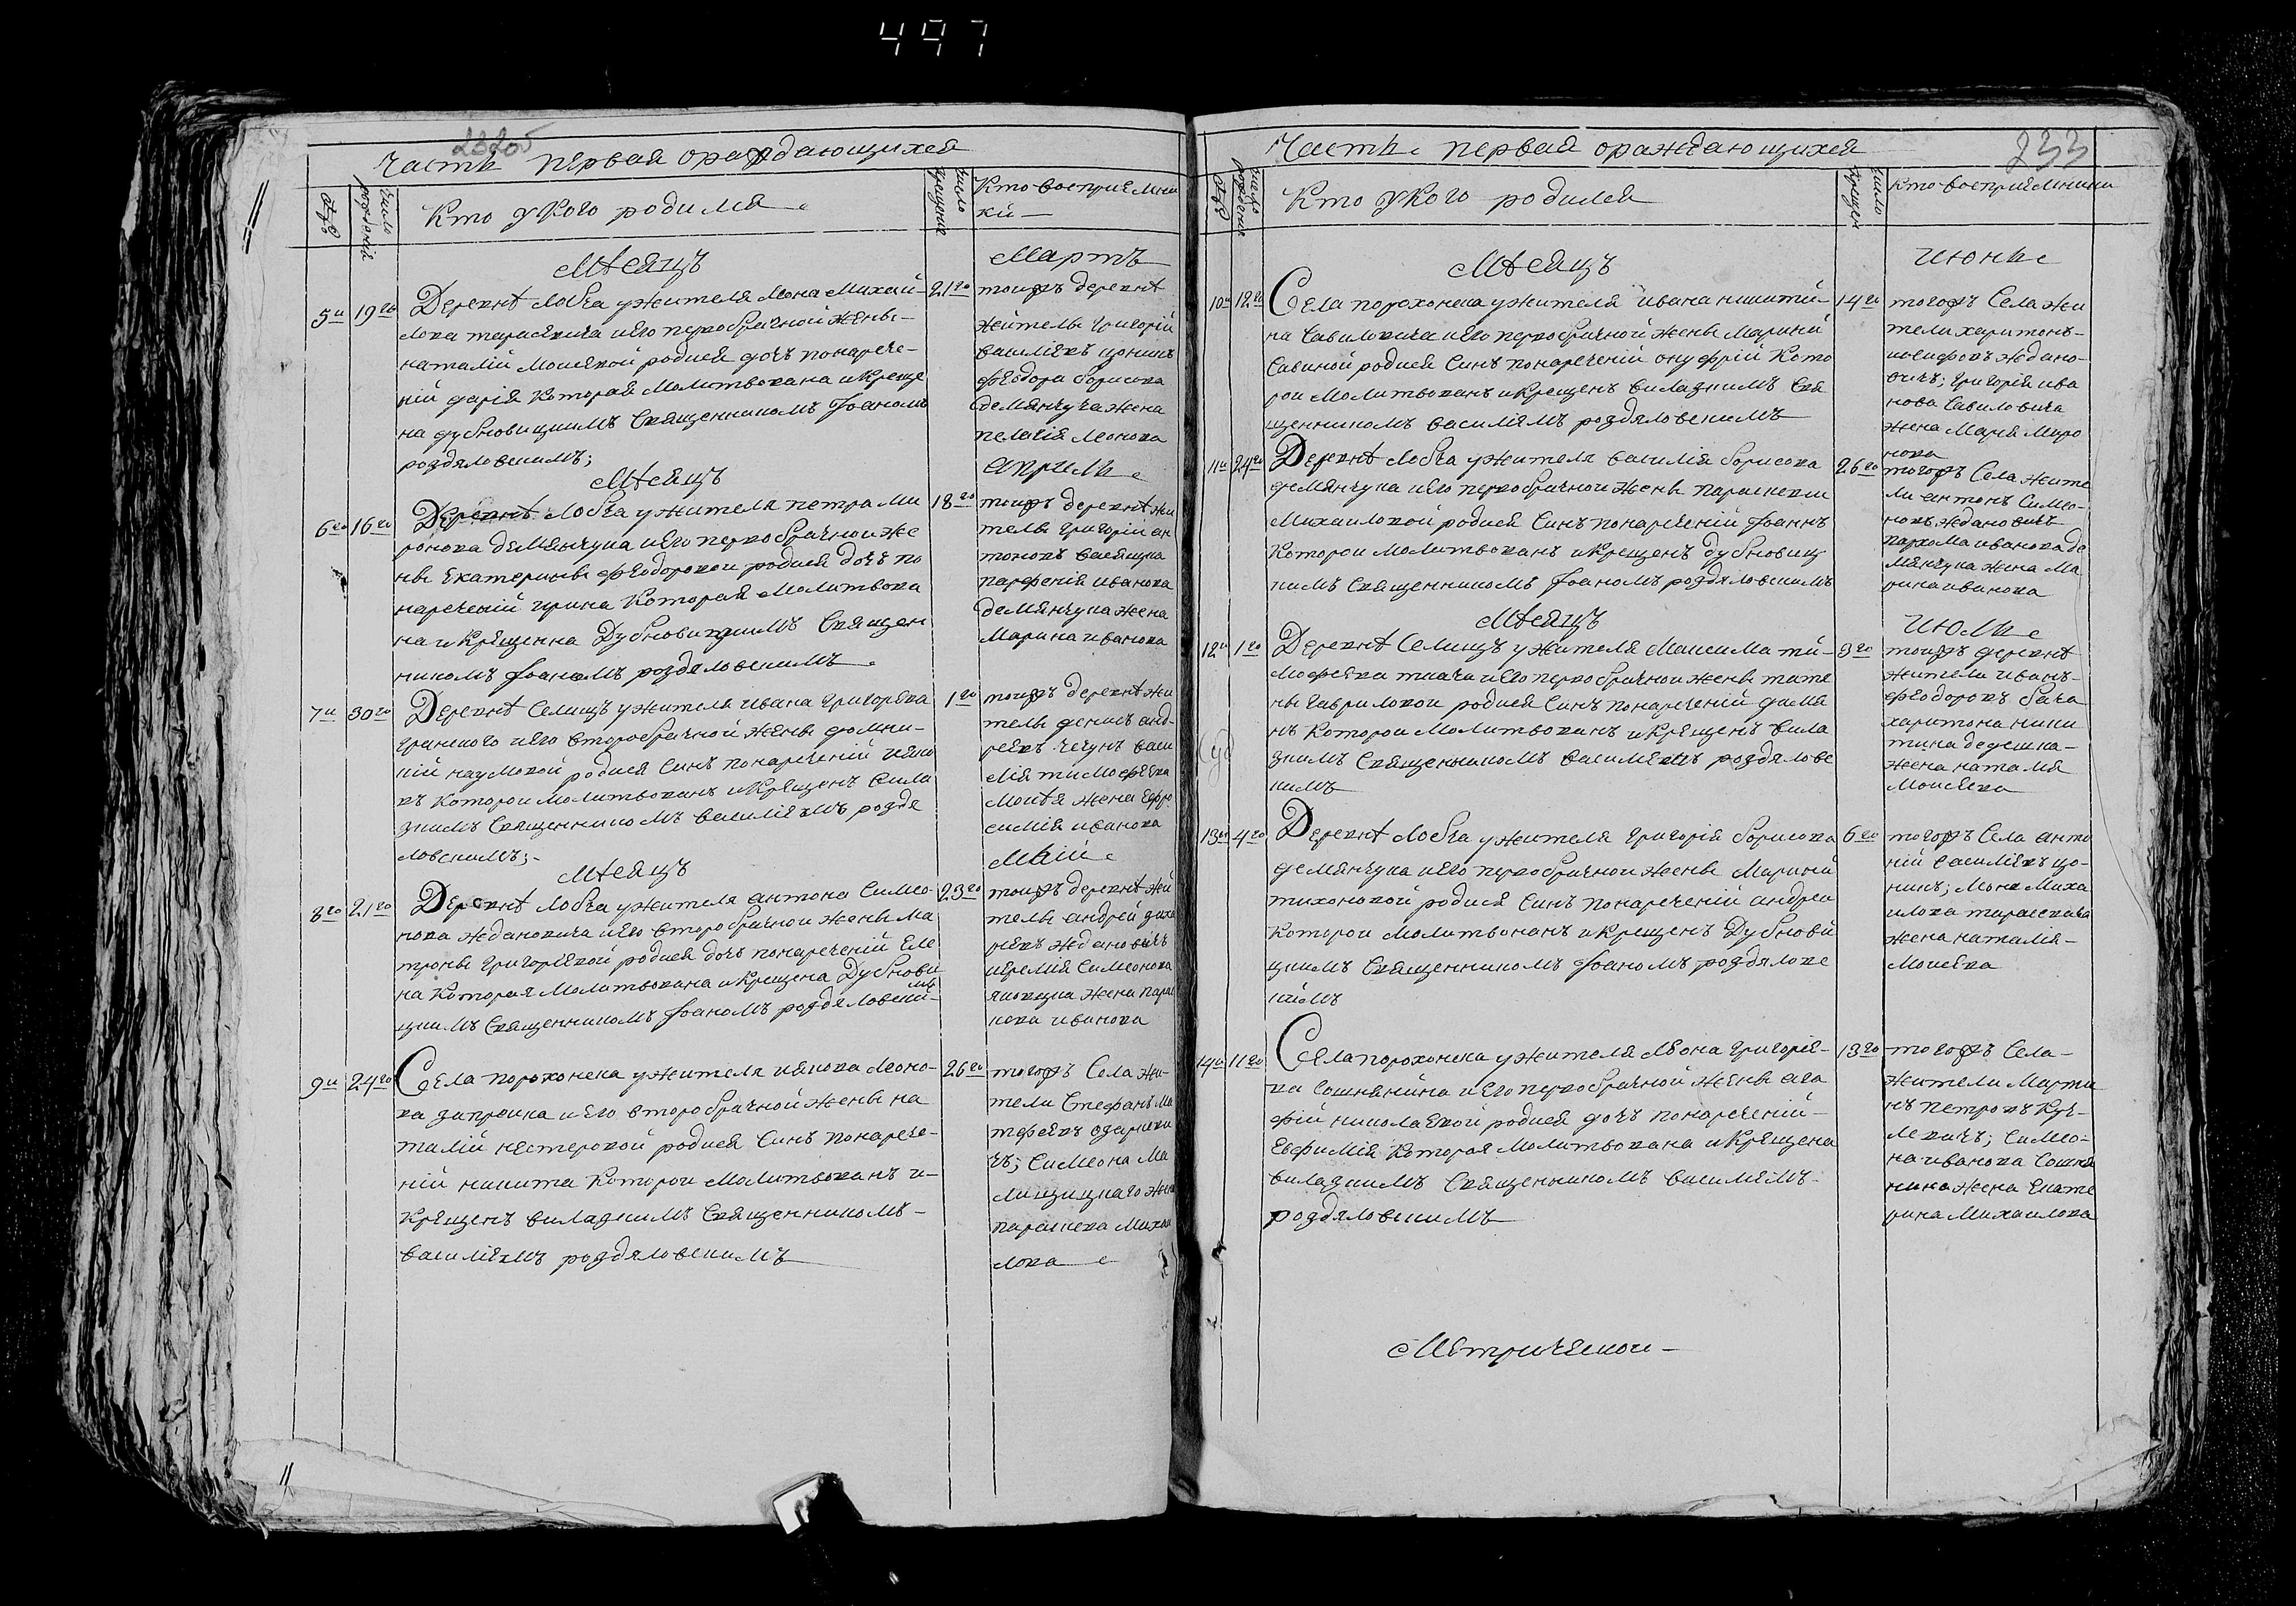 497
232об
Часть первая ораждающихся
Число рождений
Кто укого родился
Число крещения
Кто восприемни
ки
Мѣсяцъ
Мартъ
5й
19го
Деревнѣ Лобча ужителя Леона Михай-
лова тарасевича иего первобрачной жены-
наталій Моисѣвой родися дочъ понарече-
ній дарія Которая Молитвована икреще
на дубновицкимъ Священникомъ Іоаномъ
роздяловскимъ;
21го
тоижъ деревнѣ
жители григорій
василіевъ цонинъ
феодора борисова
демянчука жена
пелагія леонова
Мѣсяцъ
Апрѣль
6го
16го
Деревнѣ Лобча ужителя петра ми
ронова демянчука иего первобрачнои же
ны екатерины феодоровои родися дочъ по
наречений ирина Которая Молитвова
на икрещенна Дубновицкимъ Священ
никомъ Іоаномъ роздяловскимъ
18го
тоижъ деревнѣ жи
тель григорій ан
тоновъ васящка
парфенія иванова
демянчука жена
Марина иванова
7й
30го
Деревнѣ Селищъ ужителя ивана григорева
иего второбрачной жены домни-
кій наумовой родися синъ понареченій иако
въ которои молитвованъ икрещенъ вила
зкимъ Священникомъ василіемъ роздя
ловскимъ;-
1го
тоижъ деревнѣ жи
тель денисъ анд-
реевъ чечунъ васи
лія тимофеева
жена евфро
синія иванова
Мѣсяцъ
Маій
8го
21го
Деревнѣ Лобча ужителя антона Симео-
нова ждановича иего второбрачнои жены ма
троны григоріевой родися дочъ понареченій еле
на которая молитвована икрещена Дубнови
цкимъ Священникомъ Іоаномъ роздяловскимъ
23го
тоижъ деревнѣ жи
тель андрей заха
риевъ ждановичъ
иеремія Симеонова
яковца жена парас
кева иванова
9й
24го
Села порохонска ужителя иякова леоно-
ва запреика иего второбрачной жены на
талій нестеровой родися Синъ понарече-
ній никита которои молитвованъ и-
крещенъ вилазкимъ Священникомъ-
василіемъ роздяловскимъ
26го
тогожъ Села жи-
тели Стефанъ ма
тфеевъ одарики
чъ; Симеона ма
лищицкаго жена
параскева михаи
лова
233
Часть первая ораждающихся
Число рождения
Кто укого родился
Число крещен
Кто восприемники
Мѣсяцъ
Июнь
10й
12го
Села порохонска ужителя ивана никити-
на Савиловича иего первобрачной жены мариній
Савиной родися Синъ понареченій онуфрій кото
рои молитвованъ икрещенъ вилазкимъ Свя
щенникомъ василіемъ роздяловскимъ
14го
тогожъ Села жи
тели харитонъ-
иосифовъ ждано-
вичъ; григорія ива
нова Савиловича
жена марія миро
нова
11й
24го
Деревнѣ Лобча ужителя василія борисова
демянчука иего первобрачнои жены параскеви
михаиловой родися Синъ понареченій Іоаннъ
которои молитвованъ икрещенъ дубновиц
кимъ Священникомъ Іоаномъ роздяловскимъ
26го
тогожъ Села жите
ли антонъ Симео-
новъ ждановичъ
пахома иванова де
мянчука жена ма
рина иванова
Мѣсяцъ
Июль
12й
1го
Деревнѣ Селищъ ужителя максима ти-
мофеева ткача иего первобрачнои жены татя
ны гавриловои родися Синъ понареченій дамя
нъ которои молитвованъ икрещенъ вила
зкимъ Священникомъ василіемъ роздялове
кимъ
3го
тоижъ деревнѣ
жители иванъ-
феодоровъ бача
харитона ники
тина дедешка-
жена наталія
моисеева
13й
4го
Деревнѣ Лобча ужителя григорія борисова
демянчука иего первобрачнои жены мариній
тихоновой родися Синъ понареченій андреи
которои молитвованъ икрещенъ Дубнови
цкимъ Священникомъ Іоаномъ роздялове
кимъ
6го
тогожъ Села анто
ній василіевъ цо-
нинъ; леона миха
илова тарасевича
жена наталія-
моисеева
14й
11го
Села порохонска ужителя леона григоріе-
ва Сошнянина иего первобрачной жены ага
фій николаевой родися дочъ понареченій-
евфимія которая молитвована икрещена
вилазкимъ Священникомъ василіемъ-
роздяловскимъ
13го
тогожъ Села-
жители марти
нъ петровъ куч-
левичъ; Симео-
на иванова Сошня
нина жена екате
рина михаилова
Метрической-